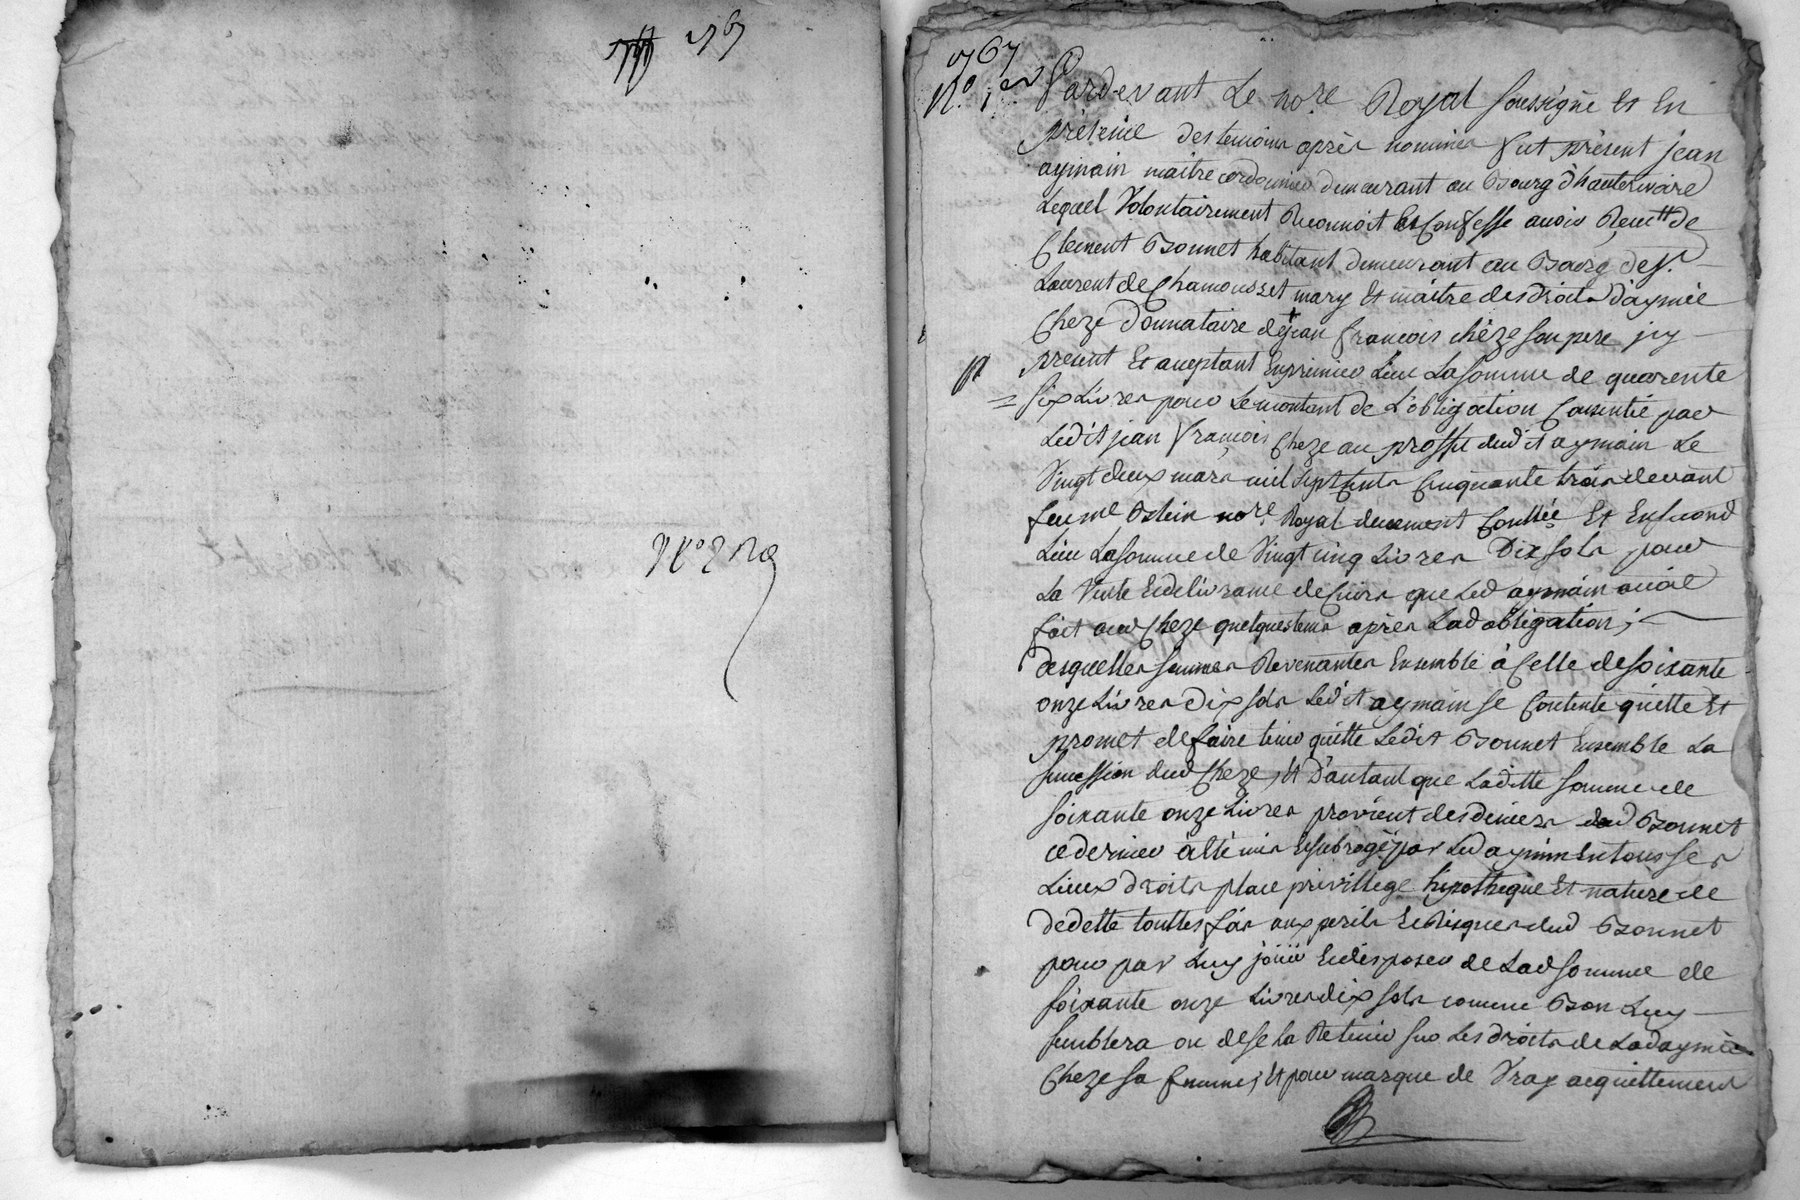 1767
N° 2 Na
1767
N.° 1.er
Pardevant Le no.re Royal soussigné Et En
présence des temoins après nommés fut présent jean
aymain maitre cordonnier demeurant au Bourg d'hauterivoire
Lequel Volontairement Reconnoit Et Confesse avoir Reçeu de
Clement Bonnet habitant demeurant au Bourg de St.
Laurent de Chamousset mary Et maitre des droits d'aymée
Cheze donnataire de jean françois chèze son pere icy
présent Et aceptant En premier Lieu La somme de quarente
six Livres pour Le montant de L'obligation Consentie par
Ledit jean françois Cheze au proffit dudit aymain Le
Vingt deux mars mil sept Cents Cinquante trois devant
feu me no.re Royal duement Conttée Et En second
Lieu La somme de Vingt cinq Livres Dix sols pour
La Vente Et delivrance de Cuirs que Led aymain avoit
fait aud Cheze quelques tems après Lad obligation;
desquelles sommes Revenantes Ensemble à Celle de soixante
onze Livres dix sols Ledit aymain se Contente quitte Et
promet de faire tenir quitte Ledit Bonnet Ensemble La
sucession dud Cheze, Et d'autant que Laditte somme de
soixante onze Livres provient des deniers dud Bonnet
ce dernier à été mis Et subrogé par Led aymain En tous ses
Lieux droits place privillege hipothèque Et nature de
de dette touttes fois aux perils Et Risques dud Bonnet
pour par Luy joüir Et disposer de Lad somme de
soixante onze Livres dix sols comme Bon Luy
semblera ou de se La Retenir sur Les droits de Lad aymée
Cheze sa femme, Et pour marque de Vray acquittement